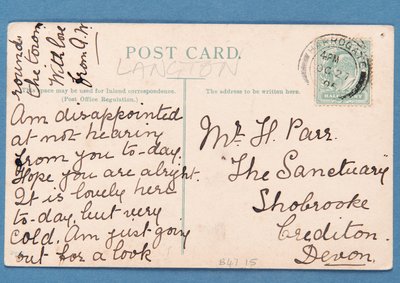 round
the town
With love
from A.W
POST CARD.
LANGTON
This space may be used for Inland correspondence.
(Post Office Regulation.)
The address to be written here.
HARROGATE
4 PM
OC 21
Am disappointed
at not hearing
from you to-day.
Hope you are alright.
It is lovely here
to-day, but very
cold. Am just going
out for a look
Mr H. Parr.
"The Sanctuary"
Shobrooke
Crediton.
Devon.
B47 15